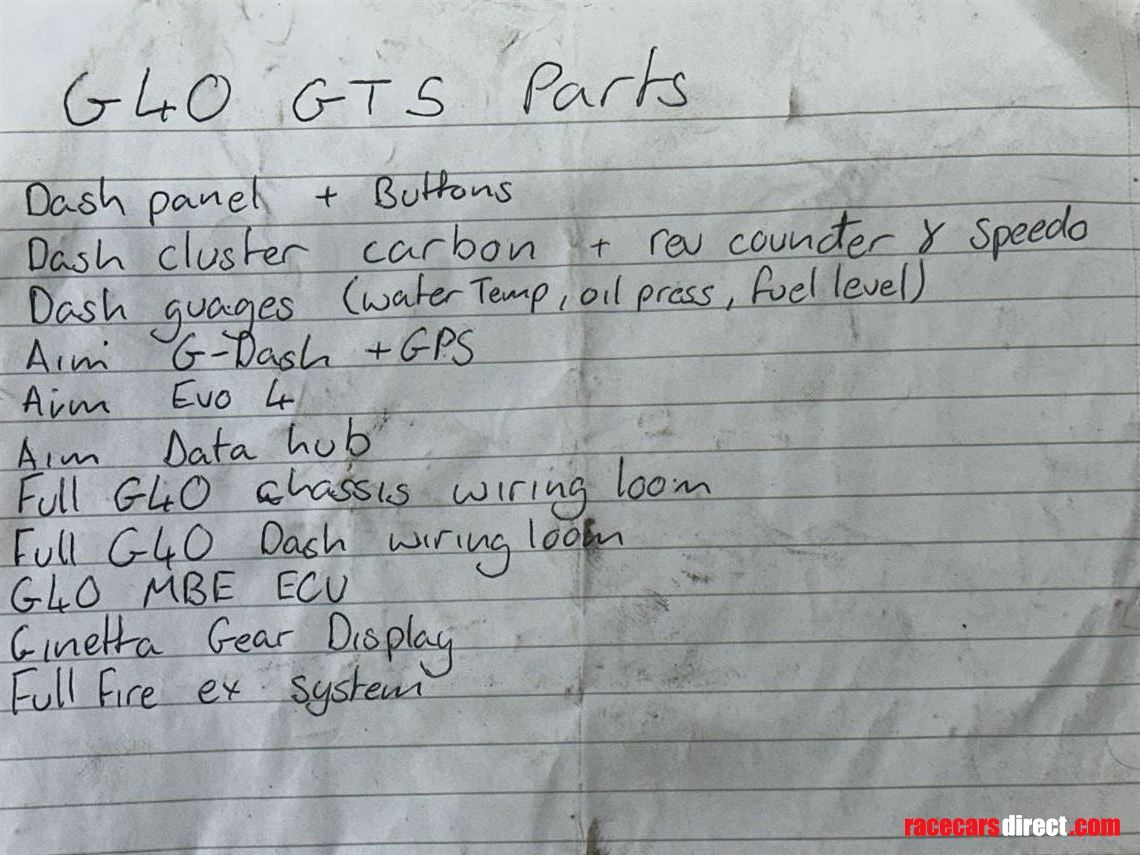 G40 GTS Parts
Dash panel + Buttons
Dash cluster carbon + rev counter & Speedo
Dash guages (water Temp, oil press, fuel level)
Aim G-Dash + GPS
Aim Evo 4
Aim Data hub
Full G40 chassis wiring loom
Full G40 Dash wiring loom
G40 MBE ECU
Ginetta Gear Display
Full Fire ex system
racecarsdirect.com